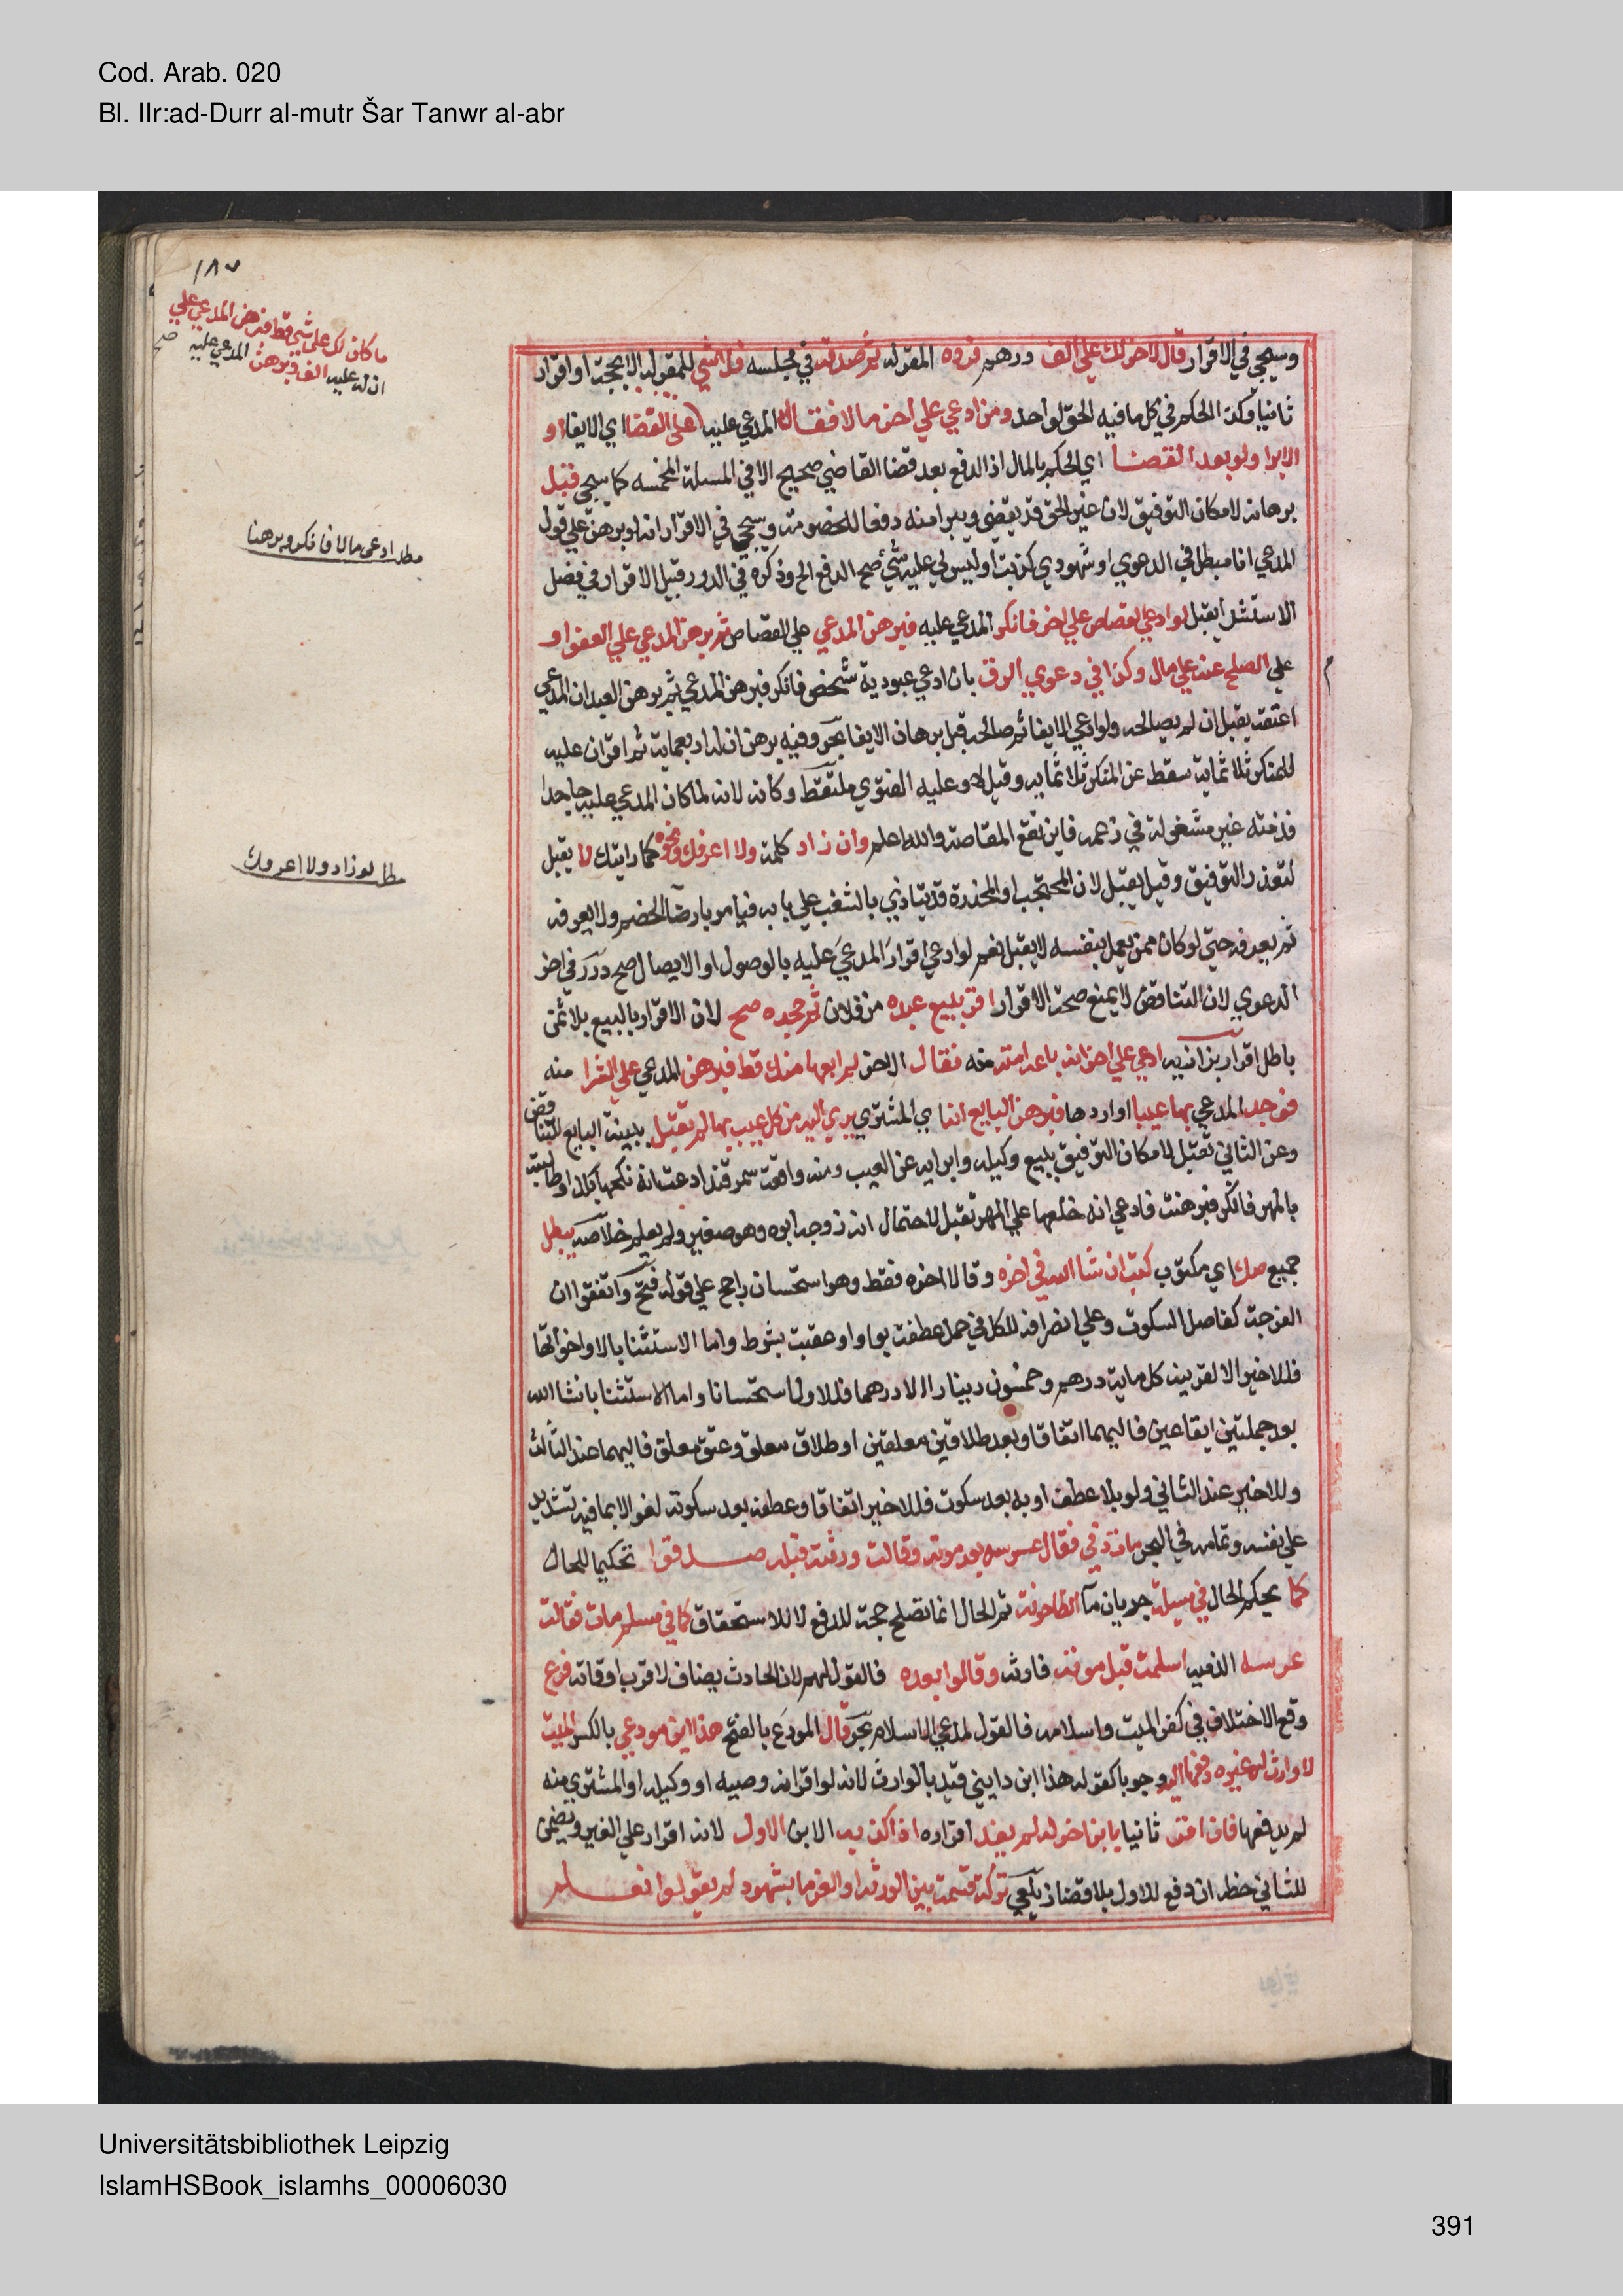 Cod. Arab. 020
Bl. IIr:ad-Durr al-mutr Šar Tanwr al-abr
١٨٧
ما كان لك علي شي قط فبرهن المدعي علي
ان له عليه الف وبرهن المدعي عليه صح
وسيجي في الاقرار قال لاخر لك علي الف درهم فرده المقر له ثم صدقه في مجلسه فلا شي للمقر له الا بحجة او اقرار
ثانيا وكذا الحكم في كل ما فيه الحق لواحد ومن ادعي علي اخر مالا فقال المدعي عليه علي القضا اي الايفا او
الابرا ولو بعد القضا اي الحكم بالمال اذ الدفع بعد قضا القاضي صحيح الا في المسلة المخمسه كما سيجي قبل
برهانه لامكان التوفيق لان غير الحق قد يقضي ويبرا منه دفعا للخصومة وسيجي في الاقرار انه لو برهن علي قول
مطلب ادعي مالا فانكر وبرهنا
المدعي انا مبطل في الدعوي او شهودي كذبة او ليس لي عليه شي صح الدفع الخ وذكره في الدرر قبيل الاقرار في فصل
الاستشرا يقبل لو ادعي القصاص علي اخر فانكر المدعي عليه فبرهن المدعي علي القصاص ثم برهن المدعي علي العفو او
علي الصلح عنه علي مال وكذا في دعوي الرق بان ادعي عبودية شخص فانكر فبرهن المدعي ثم برهن العبد ان المدعي
اعتقه يقبل ان لم يصالحه ولو ادعي الايفا ثم صالحه قبل برهان الايفا بحر وفيه برهن ان له اربعماية ثم اقر ان عليه
للمنكر ثلاثماية سقط عن المنكر ثلاثمايه وقيل لا وعليه الفتوي ملتقط وكانه لانه لما كان المدعي عليه جاحدا
فذمته غير مشغولة في زعمه فاين تقع المقاصة والله اعلم وان زاد كلمة ولا اعرفك ونحوه كما رايتك لا يقبل
مطلب لو زاد ولا اعرفك
لتعذر التوفيق وقيل يقبل لان المحتجب او المخدرة قد يتاذي بالشغب علي بابه فيامر بارضا الخصم ولا يعرفه
ثم يعرفه حتي لو كان ممن يعمل بنفسه لا يقبل نعم لو ادعي اقرار المدعي عليه بالوصول او الايصال صح درر في اخر
الدعوي لان التناقض لا يمنع صحة الاقرار اقر ببيع عبده من فلان ثم جحده صح لان الاقرار بالبيع بلا ثمن
باطل اقرار بزازيه ادعي علي اخر انه باعه امته منه فقال الاخر لم ابعها منك قط فبرهن المدعي علي الشرا منه
فوجد المدعي بها عيبا او اردها فبرهن البايع انه اي المشتري بري اليه من كل عيب بها لم تقبل ببينة البايع للتناقض
وعن الثاني تقبل لامكان التوفيق ببيع وكيله وابرايه عن العيب ومنه واقعة سمرقند ادعت انه نكحها بكذا وطالبته
بالمهر فانكر فبرهنت فادعي انه خلعها علي المهر تقبل لاحتمال انه زوجه ابوه وهو صغير ولم يعلم خلاصه يبطل
جميع صك اي مكتوب كتب ان شا الله في اخره وقالا اخره فقط وهو استحسان راجح علي قوله فتح واتفقوا ان
الفرجة كفاصل السكوت وعلي انصرافه للكل في جمل عطفت بواو او عقبت بشرط واما الاستثنا بالا واخواتها
فللاخير الا لقرينة كله ماية درهم وخمسون دينارا الا درهما فللاول استحسانا واما الاستثنا بان شا الله
بعد جملتين ايقاعين فاليهما اتفاقا وبعد طلاقين معلقين او طلاق معلق وعتق معلق فاليهما عند الثالث
وللاخير عند الثاني ولو بلا عطف او به بعد سكوت فللاخير اتفاقا وعطفه بعد سكوته لغو الا بما فيه تشديد
علي نفسه وتمامه في البحر مات ذمي فقال عرسه بعد موته وقالت ورثته قبله صدقوا تحكيما للحال
كما يحكم الحال في مسيلة جريان ما الطاحونة ثم الحال انما تصلح حجة للدفع لا للاستحقاق كما في مسلم مات فقالت
عرسه الذميه اسلمت قبل موته فارثه وقالوا بعده فالقول لهم لان الحادث يضاف لاقرب اوقاته فرع
وقع الاختلاف في كفر الميت واسلامه فالقول لمدعي الاسلام بحر قال المودع بالفتح هذا ابن مودعي بالكسر الميت
لا وارث له غيره دفعها اليه وجوبا كقوله هذا ابن دايني قيد بالوارث لانه لو اقر انه وصيه او وكيله او المشتري منه
لم يدفعها فان اقر ثانيا بابن اخر له لم يفد اقراره اذا كذبه الابن الاول لانه اقرار علي الغير ويضمن
للثاني حظه ان دفع للاول بلا قضا زيلعي تركة قسمت بين الورثة او الغرما بشهود لم يقولوا نعلم
Universitätsbibliothek Leipzig
IslamHSBook_islamhs_00006030
391